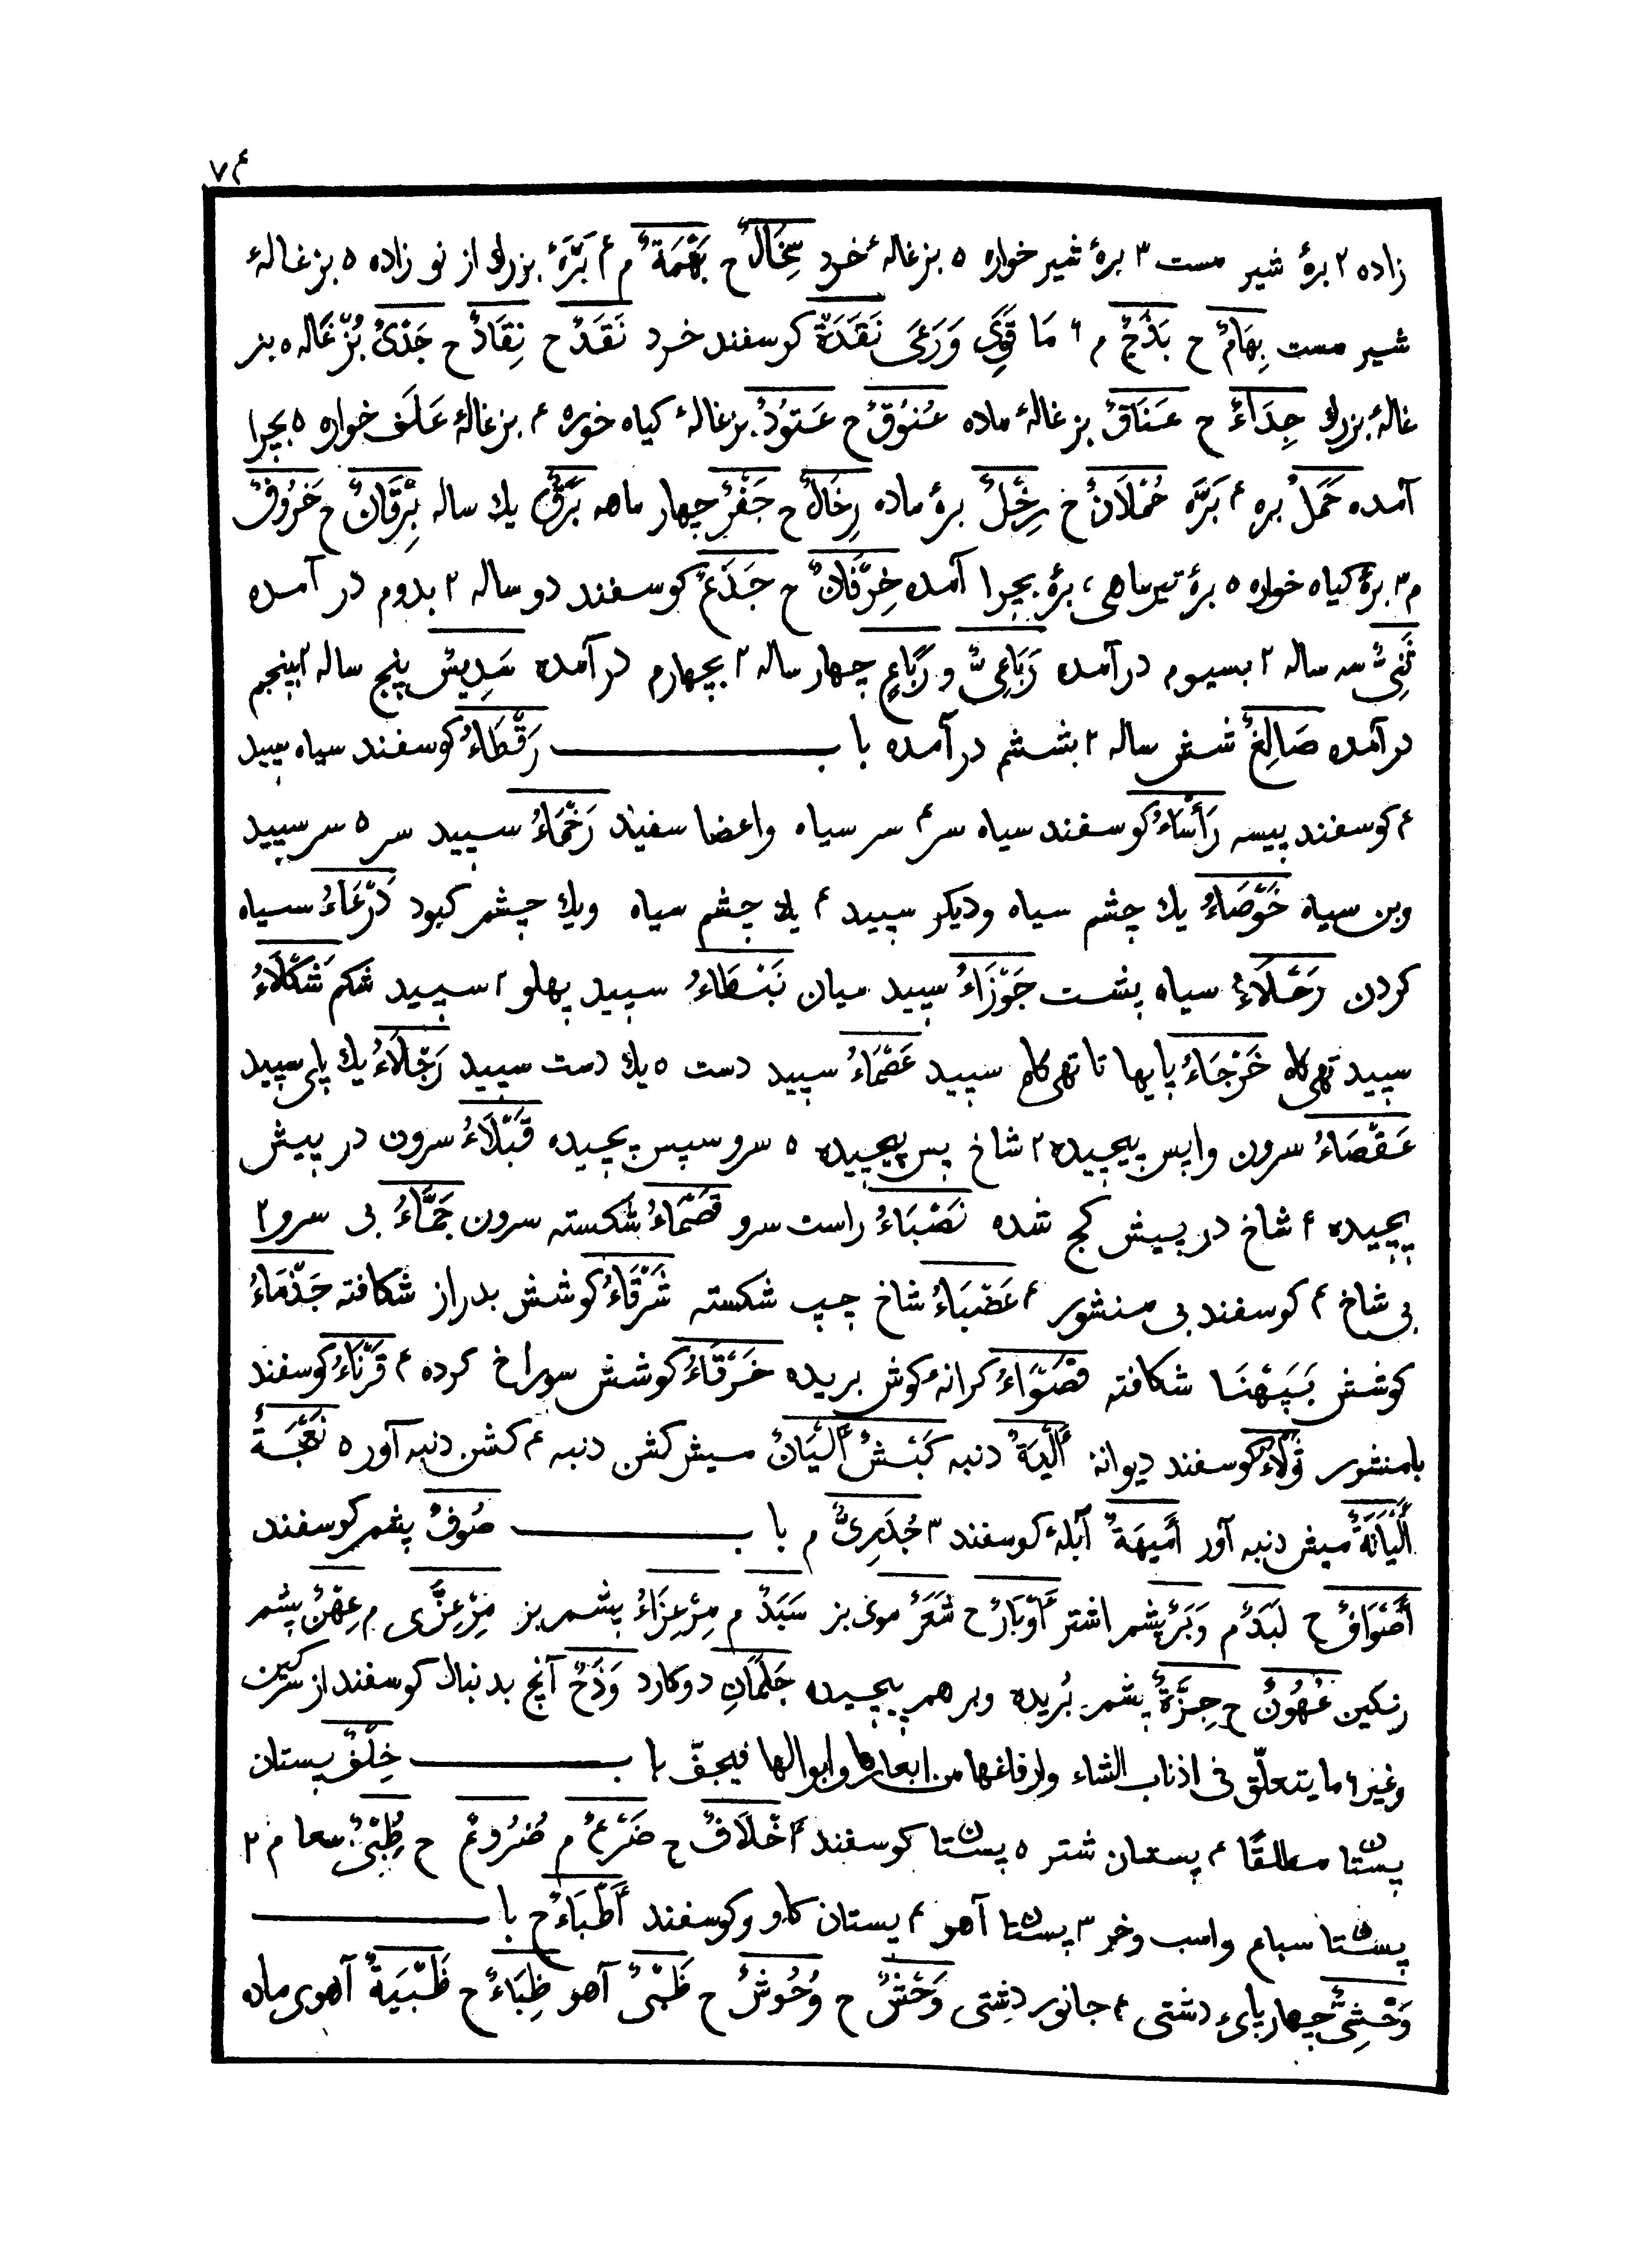 ۷۴
زاده ۲ برۀ شیر مست ۳ برۀ شیر خواره ۵ بزغالهٔ خرد سِخَالٌ ح بَهْمَةٌ م ۴ بَرَّۀ بزرك از نو زاده ۵ بزغالۀ
شیر مست بِهَامٌ ح بَذَجٌ م ۴ مَا قَوِیَ وَرَعَی نَقَدَةٌ کوسفند خرد نَقَدٌ ح نِقَادٌ ح جَدْیٌ بُزغاله ۵ بز
غالۀ بزرك جِدَاءٌ ح عَنَاقٌ بزغالهٔ ماده عُنُوقٌ ح عَتُودٌ بزغالهٔ کیاه خوره ۴ بزغالۀ عَلَف خواره ۵ بچرا
آمده حَمَلٌ بره ۴ بَرَّه حُمْلَانٌ ح رِخْلٌ برۀ ماده رِخَالٌ ح جَفْرٌ چهار ماهه بَرَقٌ یك ساله بِرْقَانٌ ح خَرُوفٌ
م ۳ برۀ کیاه خواره ۵ برۀ تیرماهی، برۀ بچرا آمده خِرْفَانٌ ح جَذَعٌ کوسفند دو ساله ۲ بدوم در آمده
ثَنِیٌّ سه ساله ۲ بسیوم درآمده رَبَاعِیٌّ و رَبَاعٍ چهار ساله ۲ بچهارم درآمده سَدِیسٌ پنج ساله ۲ بپنجم
درآمده صَالِغٌ شش ساله ۲ بششم درآمده با ب رَقْطَاءُ کوسفند سیاه سپید
۴ کوسفند پیسه رَأْسَاءُ کوسفند سیاه سر ۴ سر سیاه واعضا سفید رَخْمَاءُ سپید سر ۵ سر سپید
وبن سیاه خَوْصَاءُ یك چشم سیاه ودیکر سپید ۴ یك چشم سیاه ویك چشم کبود دَرْعَاءُ سیاه
کردن رَحْلَاءُ سیاه پشت جَوْزَاءُ سپید میان نَبْطَاءُ سپید پهلو ۲ سپید شکم شَكْلَاءُ
سپید تهی کاه خَرْجَاءُ پایها تا تهی کاه سپید عَصْمَاءُ سپید دست ۵ یك دست سپید رَجْلَاءُ یك پای سپید
عَقْصَاءُ سرون واپس پیچیده ۲ شاخ پس پیچیده ۵ سرو سپس پیچیده قَبْلَاءُ سرون در پیش
پیچیده ۴ شاخ در پیش کج شده نَصْبَاءُ راست سرو قَصْمَاءُ شکسته سرون جَمَّاءُ بی سرو ۲
بی شاخ ۴ کوسفند بی منشور ۴ عَضْبَاءُ شاخ چپ شکسته شَرْقَاءُ کوشش بدراز شکافته جَذْمَاءُ
کوشش بَپَهْنَا شکافته قَصْوَاءُ کرانهٔ کوش بریده خَرْقَاءُ کوشش سوراخ کرده ۴ قَرْنَاءُ کوسفند
بامنشور ثَوْلَاءُ کوسفند دیوانه أَلْيَةٌ دنبه كَبْشٌ أَلْيَانٌ میش کشن دنبه ۴ کشن دنبه آور ۵ نَعْجَةٌ
أَلْيَانَةٌ میش دنبه آور أَمِيهَةٌ آبلۀ کوسفند ۳ جُدَرِیٌّ م با ب صُوفٌ پشم کوسفند
أَصْوَافٌ ح لَبَدٌ م وَبَرٌ پشم اشتر أَوْبَارٌ ح شَعَرٌ موی بز سَبَدٌ م مِرْعِزَاءُ پشم بز مِرْعِزَّی م عِهْنٌ پشم
رنکین عُهُونٌ ح جِزَّةٌ پشم بُریده وبرهم پیچیده جَلَمَانِ دوکارد وَذَحٌ آنچ بدنبال کوسفند از سرکین
وغیر ۴ ما یتعلّق فی اذناب الشاء وارفاغها من ابعارها وابوالها فیجفّ با ب خِلْفٌ پستان
پستان مطلقًا ۴ پستان شتر ۵ پستان کوسفند أَخْلَافٌ ح ضَرْعٌ م ضُرُوعٌ ح طُبْیٌ معا م ۲
پستان سباع واسب وخر ۳ پستان آهو ۴ پستان کاو وکوسفند أَطْبَاءٌ ح با ب
وَحْشِیٌّ چهارپایء دشتی ۴ جانور دشتی وَحْشٌ ح وُحُوشٌ ح ظَبْیٌ آهو ظِبَاءٌ ح ظَبْيَةٌ آهوی ماده